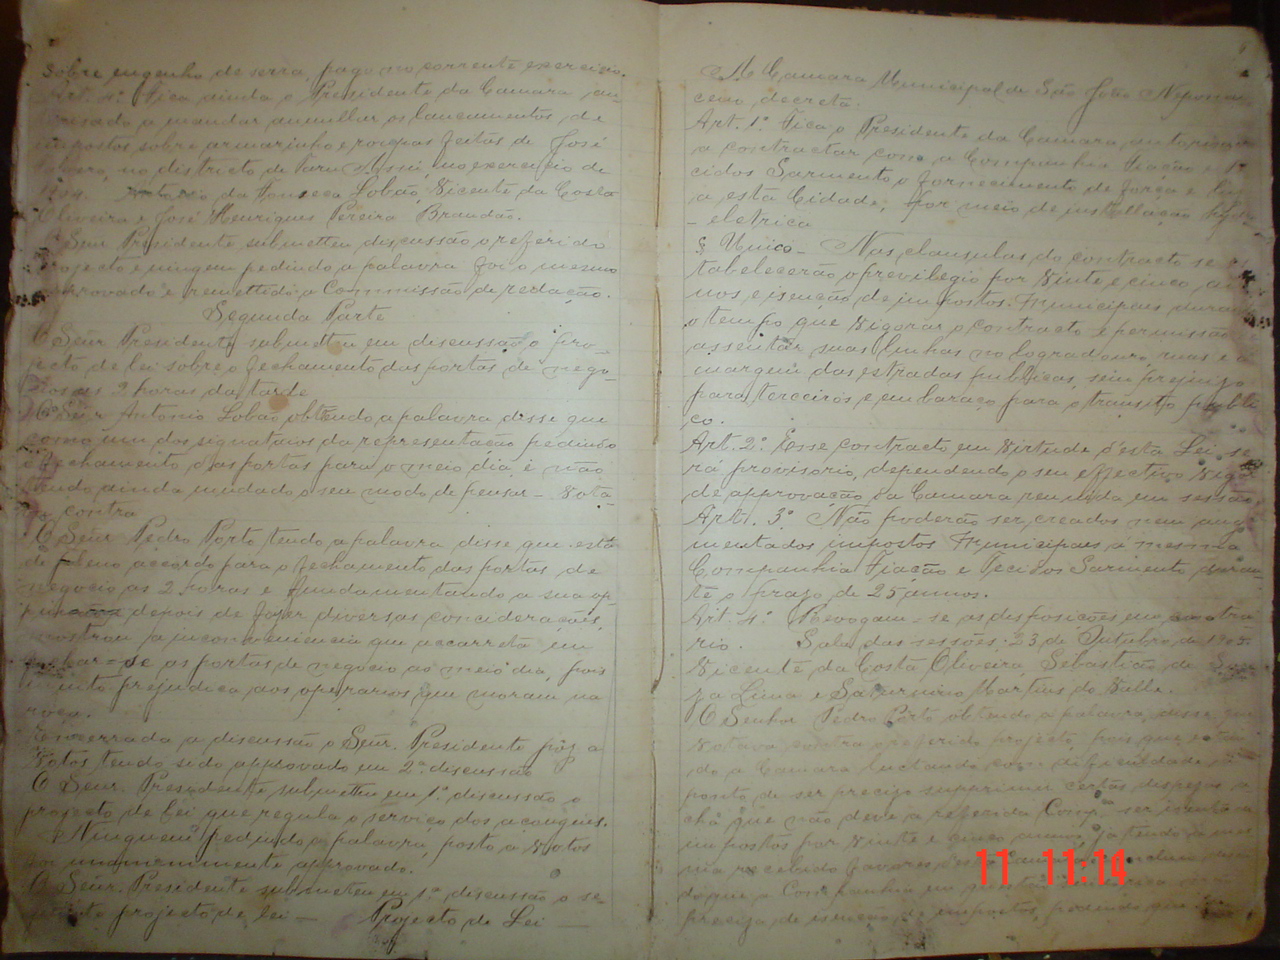 sobre engenho de serra, pago no corrente exercicio.
Art. 4º Fica ainda o Presidente da Camara au-
torisado a mandar annullar os lançamentos de
impostos sobre armarinho e roupas feitas de José
no districto de no exercicio de
Antonio da Fonseca Lobão, Vicente da Costa
Oliveira e José Henriques Pereira Brandão.
O Señr Presidente submetteu discussão o referido
projecto e ninguem pedindo a palavra foi o mesmo
approvado e remettido a Commissão de redacção.
Segunda Parte
O Señr Presidente submetteu em discussão o pro-
jecto de lei sobre o fechamento das portas de nego-
cios as 2 horas da tarde
O Señr Antonio Lobão obtendo a palavra disse que
como um dos signatarios da representação pedindo
o fechamento das portas para o meio dia e não
tendo ainda mudado o seu modo de pensar - vota-
contra
O Señr Pedro Porto tendo a palavra disse que está
de pleno accordo para o fechamento das portas de
negocio as 2 horas e fundamentando a sua op-
depois de fazer diversas conciderações,
mostrou a inconveniencia que accarreta em
fechar-se as portas de negocio ao meio dia, pois
muito prejudica aos operarios que moram na
roça.
Encerrada a discussão o Señr. Presidente poz a
votos tendo sido approvado em 2ª discussão
O Señr. Presidente submetteu em 1ª discussão o
projecto de Lei que regula o serviço dos açougues.
Ninguem pedindo a palavra, posto a votos
foi unanimimente approvado.
O Señr. Presidente submetteu em 1ª discussão o se-
guinte projecto de lei — Projecto de Lei —
A Camara Municipal de São João Nepomu-
ceno decreta:
Art. 1º Fica o Presidente da Camara autorisado
a contractar com a Companhia Fiação e Te-
cidos Sarmento o fornecimento de força e luz
a esta Cidade, por meio de installação hydro
-eletrica
§ Unico - Nas clausulas do contracto se es-
tabelecerão o previlegio por vinte e cinco an-
nos e isenção de impostos Municipaes durante
o tempo que vigorar o contracto e permissão
assentar suas linhas no logradouro, ruas e a
margem das estradas publicas, sem prejuizo
para terceiros e embaraço para o transito publi-
co.
Art. 2º Esse contracto em virtude d'esta Lei se-
rá provisorio, dependendo o seu effectivo vigor
de approvação da Camara reunida em sessão
Art. 3º Não poderão ser creados nem aug-
mentados impostos Municipaes á mesma
Companhia Fiação e Tecidos Sarmento duran-
te o prazo de 25 annos.
Art. 4º Revogam-se as desposições em contra-
rio. Sala das sessões, 23 de Outubro de
Vicente da Costa Oliveira, Sebastião de
Lima e Saturnino Martins do Valle.
O Senhor Pedro Porto obtendo a palavra, disse que
votava contra o referido projecto, pois que
do a Camara luctando com difficuldade
ponto de ser preciso supprimir certas despezas
cha que não deve a referida Comp.ª ser isenta
impostos por vinte e cinco annos, já tendo a mes
ma recebido favores
do que a Companhia em questão
precisa de isenção de impostos, podendo
11 11:14